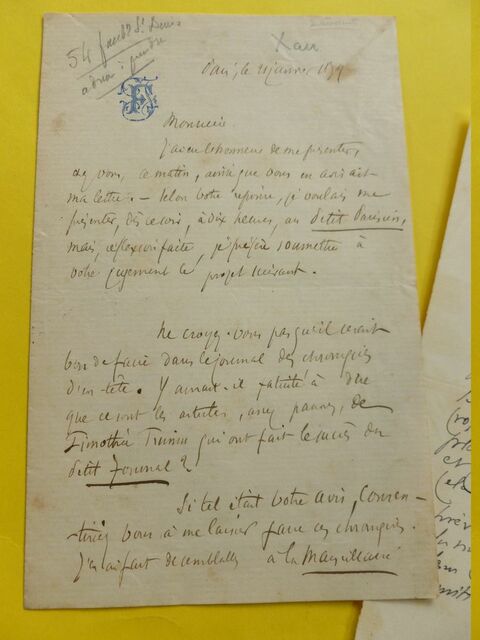 54 faub St Denis
adresse à prendre
Paris, le 21 janvier 1879
Monsieur.
J'ai eu l'honneur de me présenter,
chez vous, ce matin, ainsi que vous en avisait
ma lettre. — Selon votre réponse, je voulais me
présenter, dès ce soir, à dix heures, au Petit Parisien,
mais, réflexion faite, je préfère soumettre à
votre jugement le projet suivant.
Ne croyez-vous pas qu'il serait
bon de faire dans le journal des chroniques
d'en-tête. Y aurait-il fatuité à dire
que ce sont les articles, assez pauvres, de
Timothée Trimm qui ont fait le succès du
Petit Journal ?
Si tel était votre avis, consen-
tiriez vous à me laisser faire ces chroniques.
J'en ai fait de semblables à la Marseillaise